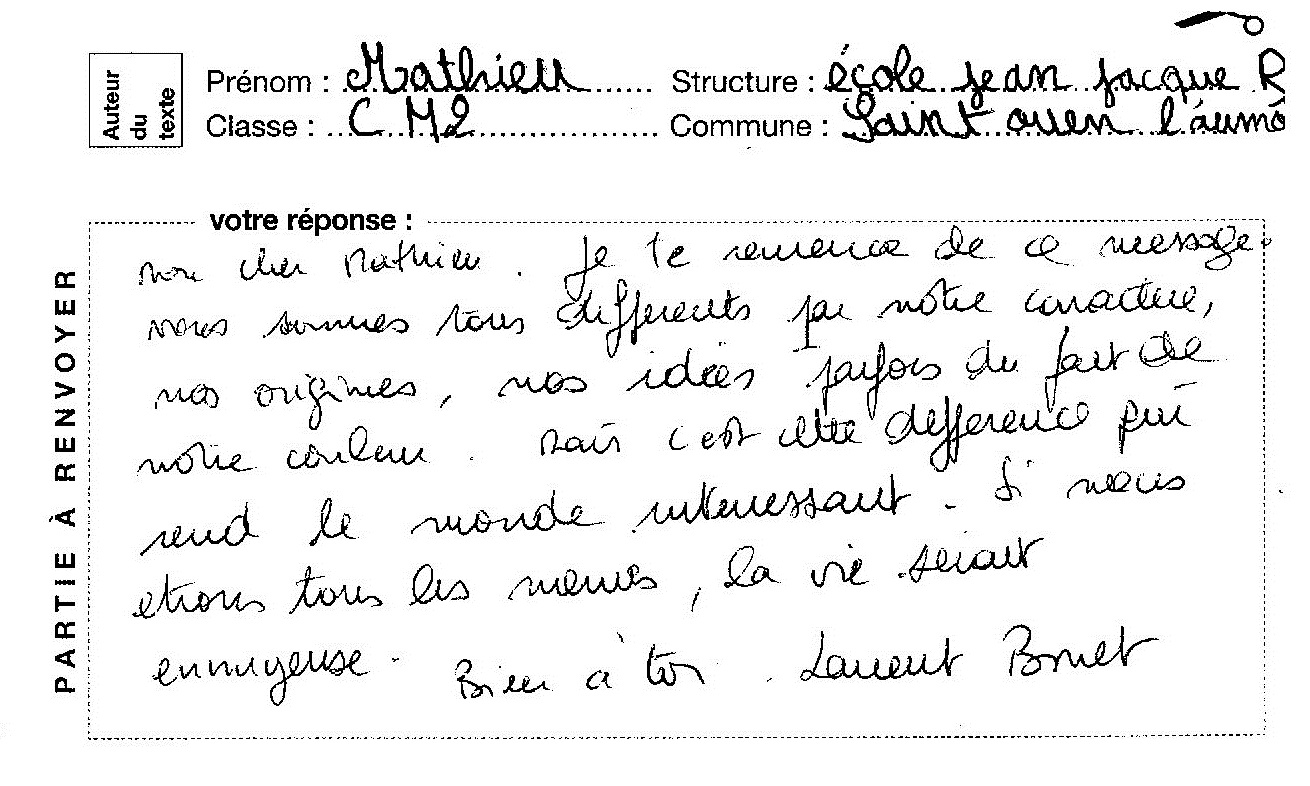 Auteur du texte
Prénom : Mathieu Structure : école jean jacque R
Classe : CM2 Commune : Saint ouen l'aumo
votre réponse :
PARTIE À RENVOYER
mon cher Mathieu. Je te remercie de ce message.
nous sommes tous differents par notre caractere,
nos origines, nos idées parfois du fait de
notre couleur. Mais c'est cette difference qui
rend le monde interessant. Si nous
etions tous les memes, la vie serait
ennuyeuse. Bien à toi. Laurent